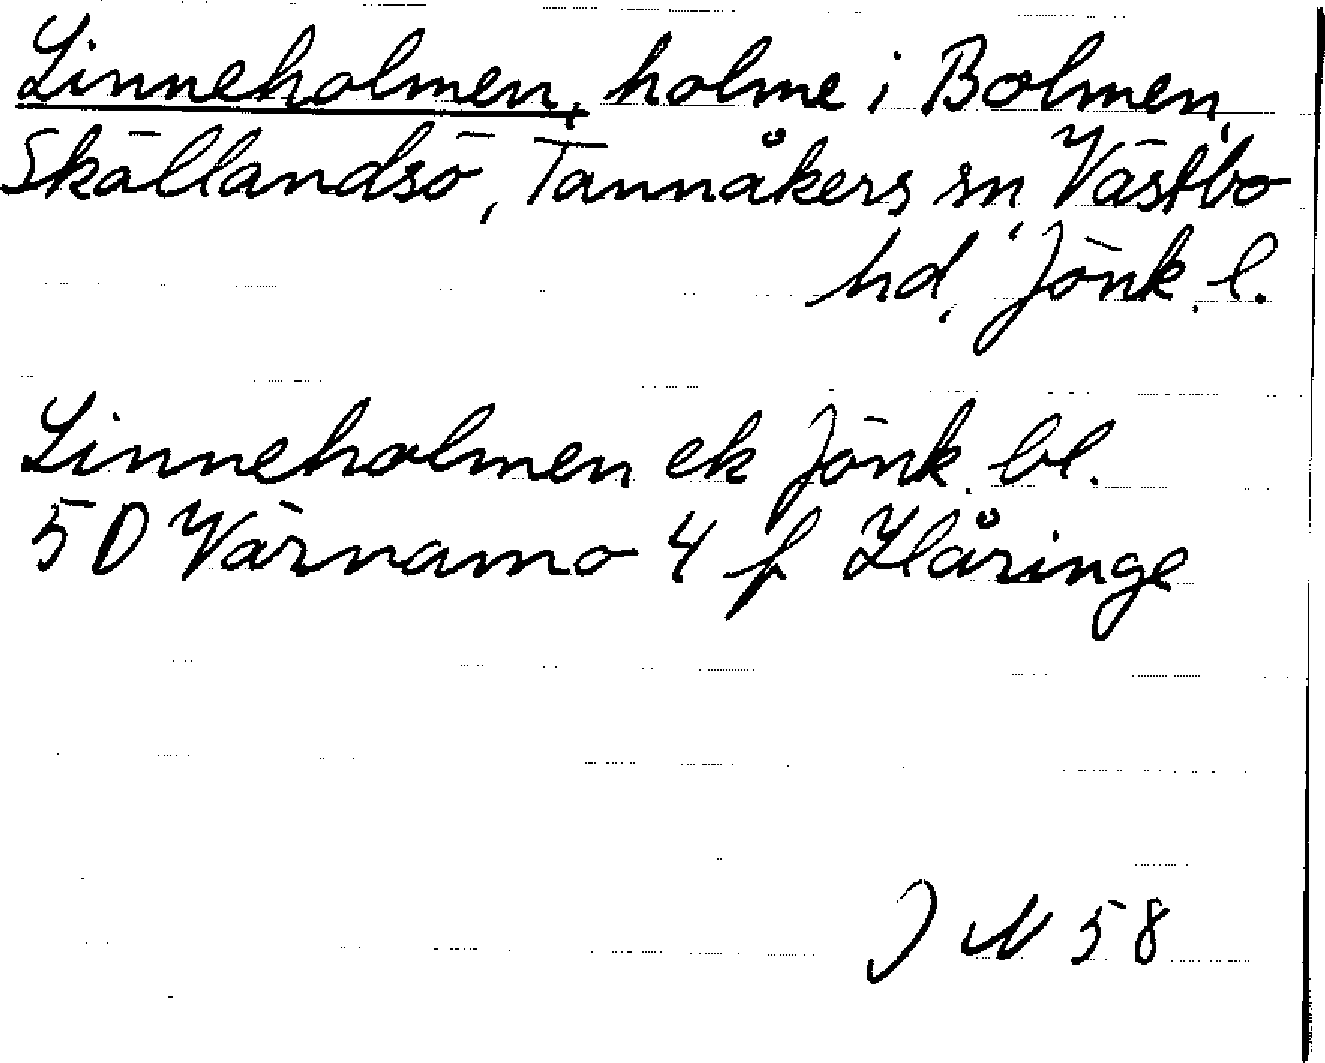 Linneholmen, holme i Bolmen,
Skällandsö, Tannåkers sn, Västbo
hd, Jönk. l.
Linneholmen ek Jönk. bl.
5D Värnamo 4 f Håringe
J N 58